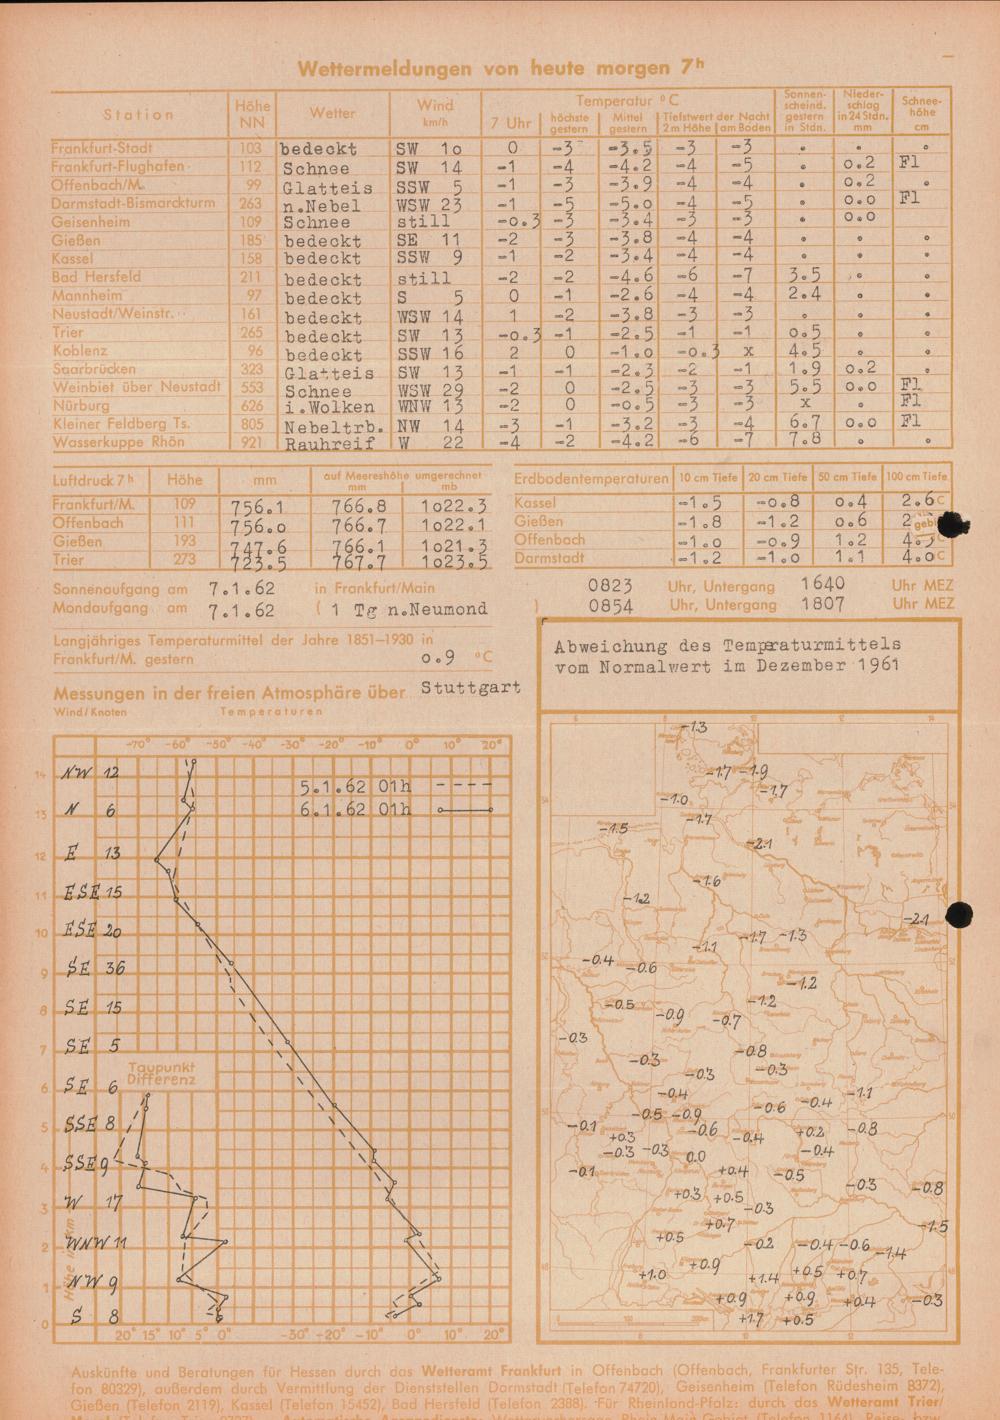 Wettermeldungen von heute morgen 7h
Station Höhe NN Wetter Wind km/h Temperatur °C 7 Uhr höchste gestern Mittel gestern Tiefstwert der Nacht 2m Höhe am Boden Sonnenscheind. gestern in Stdn. Niederschlag in 24 Stdn. mm Schneehöhe cm
Frankfurt-Stadt 103 bedeckt SW 1o 0 -3 -3.5 -3 -3 . . .
Frankfurt-Flughafen 112 Schnee SW 14 -1 -4 -4.2 -4 -5 . o.2 Fl
Offenbach/M. 99 Glatteis SSW 5 -1 -3 -3.9 -4 -4 . o.2 .
Darmstadt-Bismarckturm 263 n.Nebel WSW 23 -1 -5 -5.o -4 -5 . o.o Fl
Geisenheim 109 Schnee still -o.3 -3 -3.4 -3 -3 . o.o
Gießen 185 bedeckt SE 11 -2 -3 -3.8 -4 -4 . . .
Kassel 158 bedeckt SSW 9 -1 -2 -3.4 -4 -4 . . .
Bad Hersfeld 211 bedeckt still -2 -2 -4.6 -6 -7 3.5 . .
Mannheim 97 bedeckt S 5 0 -1 -2.6 -4 -4 2.4 . .
Neustadt/Weinstr. 161 bedeckt WSW 14 1 -2 -3.8 -3 -3 . . .
Trier 265 bedeckt SW 13 -o.3 -1 -2.5 -1 -1 o.5 . .
Koblenz 96 bedeckt SSW 16 2 0 -1.o -o.3 x 4.5 . .
Saarbrücken 323 Glatteis SW 13 -1 -1 -2.3 -2 -1 1.9 o.2 .
Weinbiet über Neustadt 553 Schnee WSW 29 -2 0 -2.5 -3 -3 5.5 o.o Fl
Nürburg 626 i.Wolken WNW 13 -2 0 -o.5 -3 -3 x . Fl
Kleiner Feldberg Ts. 805 Nebeltrb. NW 14 -3 -1 -3.2 -3 -4 6.7 o.o Fl
Wasserkuppe Rhön 921 Rauhreif W 22 -4 -2 -4.2 -6 -7 7.8 . .
Luftdruck 7h Höhe mm auf Meereshöhe umgerechnet mm mb
Frankfurt/M. 109 756.1 766.8 1o22.3
Offenbach 111 756.o 766.7 1o22.1
Gießen 193 747.6 766.1 1o21.3
Trier 273 723.5 767.7 1o23.5
Erdbodentemperaturen 10 cm Tiefe 20 cm Tiefe 50 cm Tiefe 100 cm Tiefe
Kassel -1.5 -o.8 o.4 2.6 °C
Gießen -1.8 -1.2 o.6 2
Offenbach -1.o -o.9 1.2 4.3 °C
Darmstadt -1.2 -1.o 1.1 4.o °C
Sonnenaufgang am 7.1.62 in Frankfurt/Main 0823 Uhr, Untergang 1640 Uhr MEZ
Mondaufgang am 7.1.62 ( 1 Tg n.Neumond ) 0854 Uhr, Untergang 1807 Uhr MEZ
Langjähriges Temperaturmittel der Jahre 1851–1930 in
Frankfurt/M. gestern o.9 °C
Messungen in der freien Atmosphäre über Stuttgart
Wind/Knoten Temperaturen
-70° -60° -50° -40° -30° -20° -10° 0° 10° 20°
5.1.62 01h - - - -
6.1.62 01h
14 NW 12
13 N 6
12 E 13
11 ESE 15
10 ESE 20
9 SE 36
8 SE 15
7 SE 5
Taupunkt
Differenz
6 SE 6
5 SSE 8
4 SSE 9
3 W 17
2 WNW 11
1 NW 9
0 S 8
Höhe in km
20° 15° 10° 5° 0° -30° -20° -10° 0° 10° 20°
Abweichung des Temperaturmittels
vom Normalwert im Dezember 1961
6 8 10 12 14
-1.3
-1.7 -1.9
-1.7
-1.0
-1.7
-1.5
-2.1
-1.6
-1.2
-2.1
-1.7 -1.3
-1.1
-0.4 -0.6
-1.2
-0.5 -0.9 -0.7 -1.2
-0.3
-0.8
-0.3 -0.3 -0.3
-0.4 -1.1
-0.6 -0.4
-0.5 -0.9
-0.1 -0.6 +0.2 -0.8
+0.3 -0.4
-0.3 -0.3 0.0 -0.4
-0.1 +0.4 -0.5
-0.3 -0.8
+0.3 +0.5
-0.3
+0.7 -1.5
+0.5 -0.2 -0.4 -0.6 -1.4
+0.9
+1.0 +1.4 +0.5 +0.7
+0.9 +0.9 +0.4 -0.3
+1.7 +0.5
Auskünfte und Beratungen für Hessen durch das Wetteramt Frankfurt in Offenbach (Offenbach, Frankfurter Str. 135, Tele-
fon 80329), außerdem durch Vermittlung der Dienststellen Darmstadt (Telefon 74720), Geisenheim (Telefon Rüdesheim 8372),
Gießen (Telefon 2119), Kassel (Telefon 15452), Bad Hersfeld (Telefon 2388). Für Rheinland-Pfalz: durch das Wetteramt Trier/